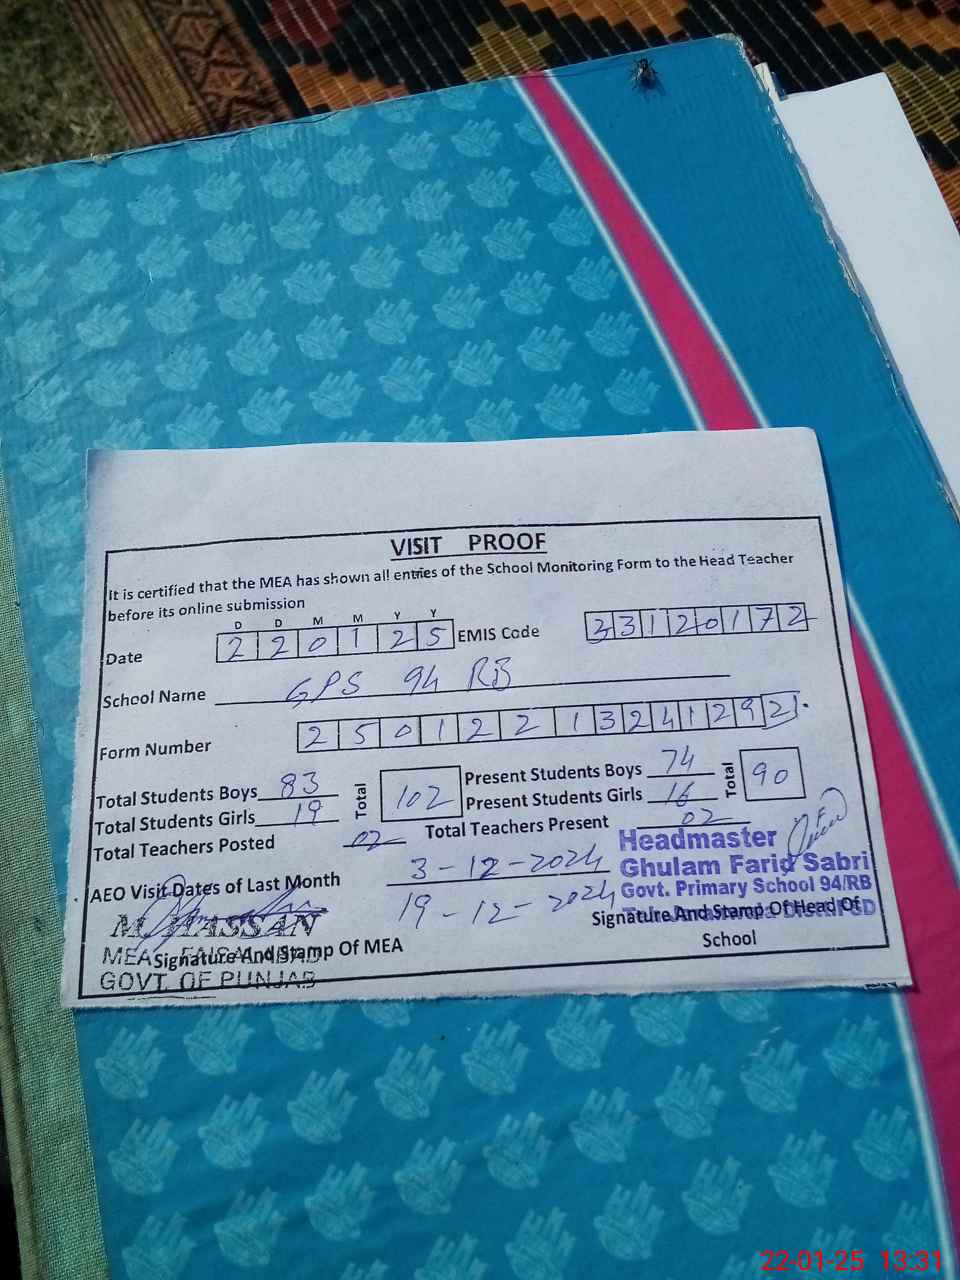 VISIT PROOF
It is certified that the MEA has shown all entries of the School Monitoring Form to the Head Teacher
before its online submission
D D M M Y Y
Date 2 2 0 1 2 5 EMIS Code 3 3 1 2 0 1 7 2
School Name GPS 94 RB
Form Number 2 5 0 1 2 2 1 3 2 4 1 2 9 2
Total Students Boys 83 Total 102 Present Students Boys 74 Total 90
Total Students Girls 19 Present Students Girls 16
Total Teachers Posted 02 Total Teachers Present 02
Headmaster
Ghulam Farid Sabri
Govt. Primary School 94/RB
AEO Visit Dates of Last Month 3-12-2024
19-12-2024
M. HASSAN
MEA FAISALABAD
GOVT. OF PUNJAB
Signature And Stamp Of MEA
Signature And Stamp Of Head Of
School
22-01-25 13:31